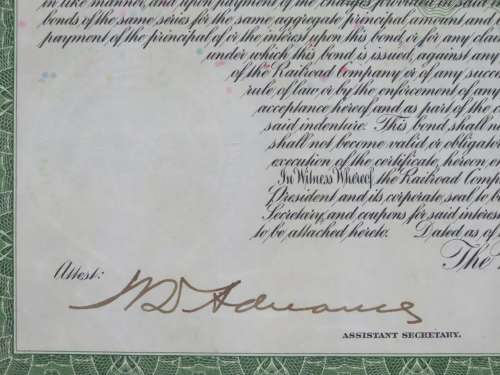 in like manner, and upon payment of the charges provided in said
bonds of the same series for the same aggregate principal amount and
payment of the principal of or the interest upon this bond, or for any clai
under which this bond is issued, against any
of the Railroad Company or of any succ
rule of law or by the enforcement of any
acceptance hereof and as part of the c
said indenture. This bond shall n
shall not become valid or obligator
execution of the certificate, hereon e
In Witness Whereof, the Railroad Comp
President and its corporate seal to b
Secretary, and coupons for said interes
to be attached hereto. Dated as of
The
Attest:
ASSISTANT SECRETARY.